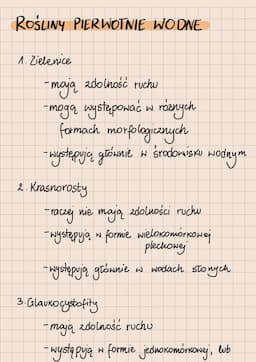 ROŚLINY PIERWOTNIE WODNE
1. Zielenice
- mają zdolność ruchu
- mogą występować w różnych
formach morfologicznych
- występują głównie w środowisku wodnym
2. Krasnorosty
- raczej nie mają zdolności ruchu
- występują w formie wielokomórkowej
plechowej
- występują głównie w wodach słonych
3. Glaukocystofity
- mają zdolność ruchu
- występują w formie jednokomórkowej, lub